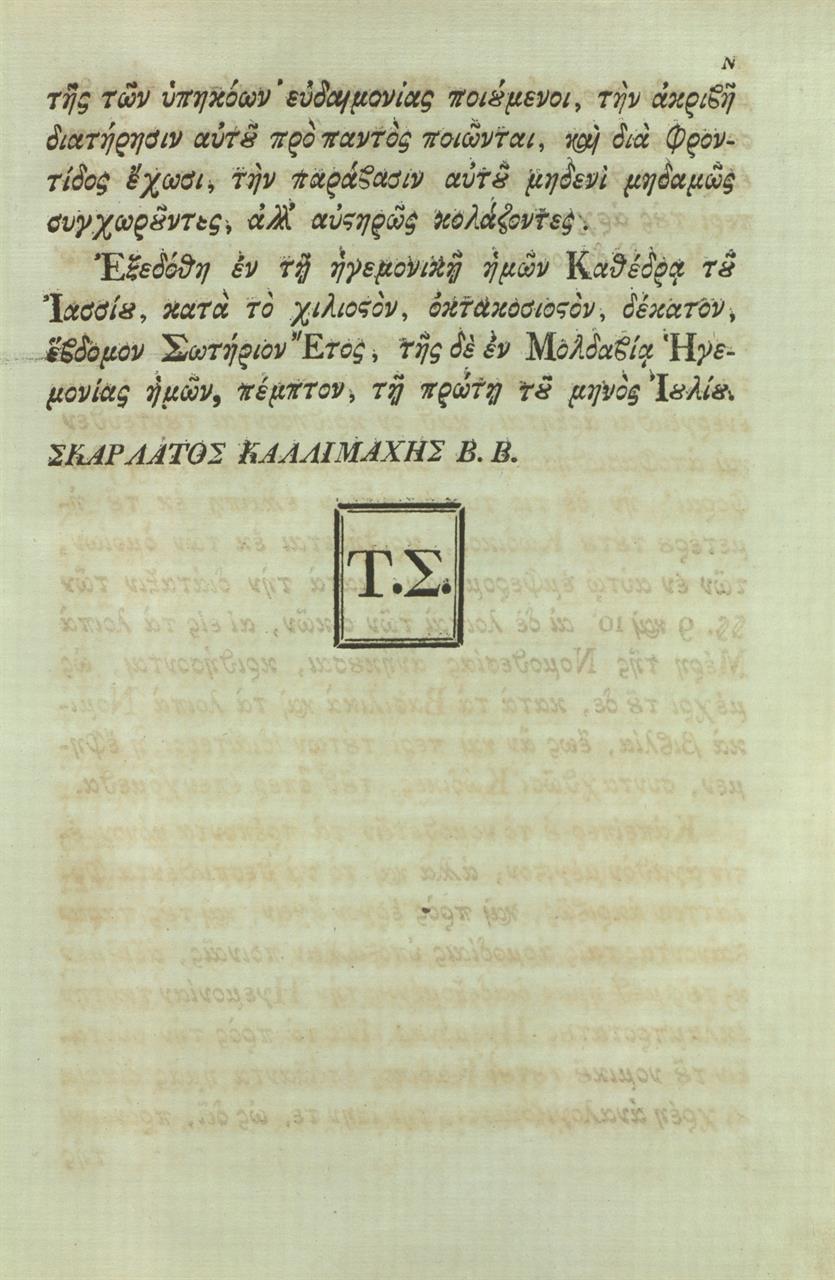 N
τῆς τῶν ὑπηκόων εὐδαιμονίας ποιȣ́μενοι, τὴν ἀκριβῆ
διατήρησιν αὐτȣ͂ πρὸ παντὸς ποιῶνται, καὶ διὰ φρον-
τίδος ἔχωσι, τὴν παράβασιν αὐτȣ͂ μηδενὶ μηδαμῶς
συγχωρȣ͂ντες, ἀλλ' αὐϛηρῶς κολάζοντες.
Ἐξεδόθη ἐν τῇ ἡγεμονικῇ ἡμῶν Καθέδρᾳ τȣ͂
Ἰασσίȣ, κατὰ τὸ χιλιοϛὸν, ὀκτακοσιοϛὸν, δέκατον,
ἕβδομον Σωτήριον Ἔτος, τῆς δὲ ἐν Μολδαβίᾳ Ἡγε-
μονίας ἡμῶν, πέμπτον, τῇ πρώτῃ τȣ͂ μηνὸς Ἰȣλίȣ.
ΣΚΑΡΛΑΤΟΣ ΚΑΛΛΙΜΑΧΗΣ Β. Β.
Τ.Σ.